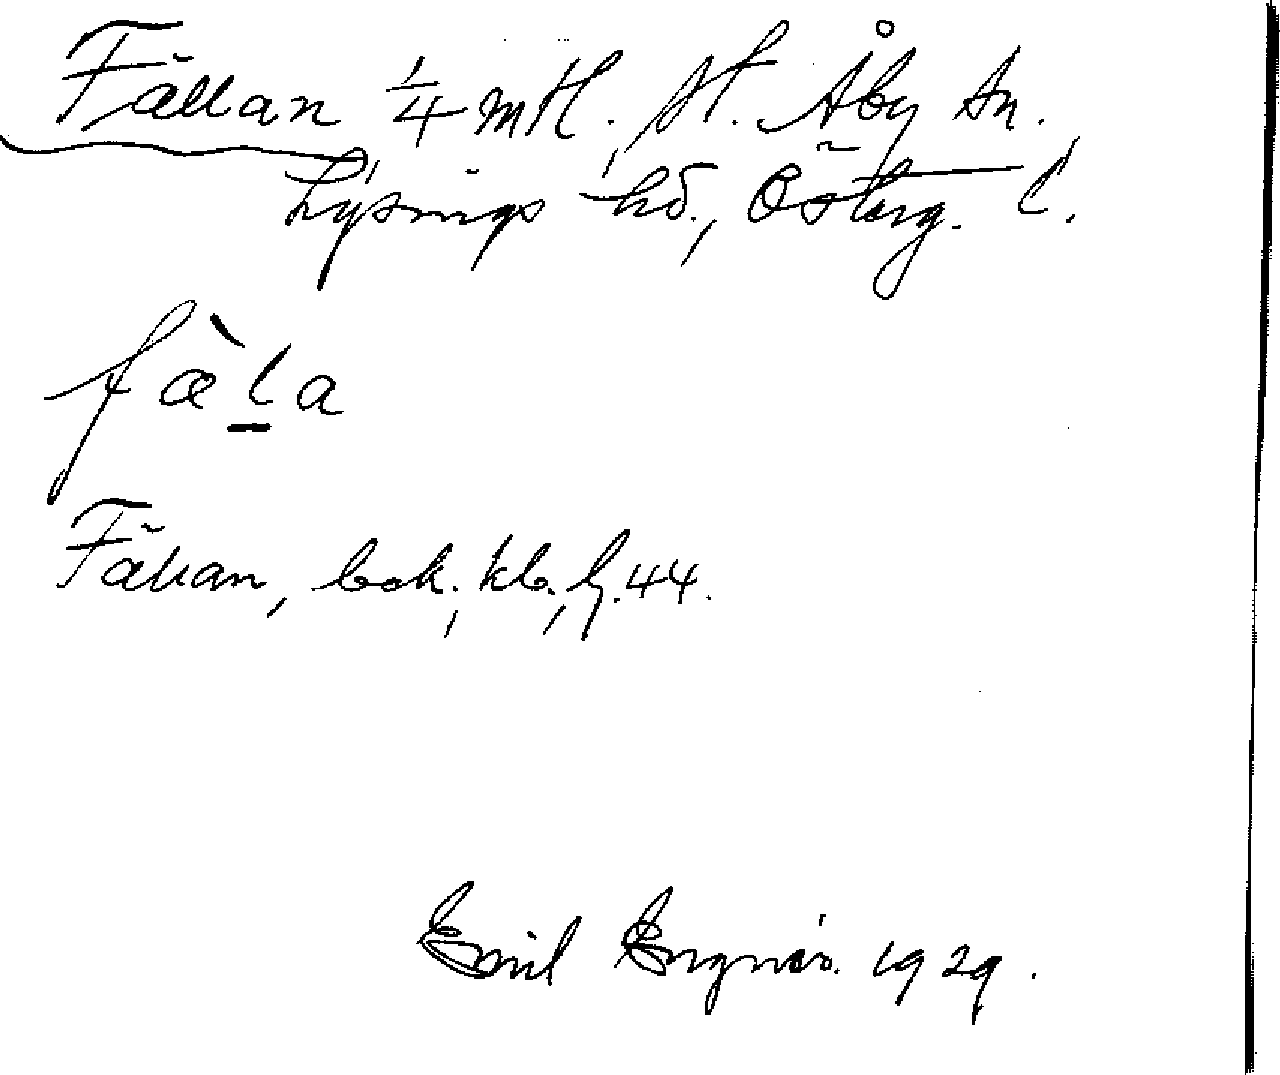 Fällan 1/4 mtl. St. Åby sn.
Lysings hd., Österg. l.
fæ̀l̲a
Fällan, bok., kb., h. 44.
Emil 1929.